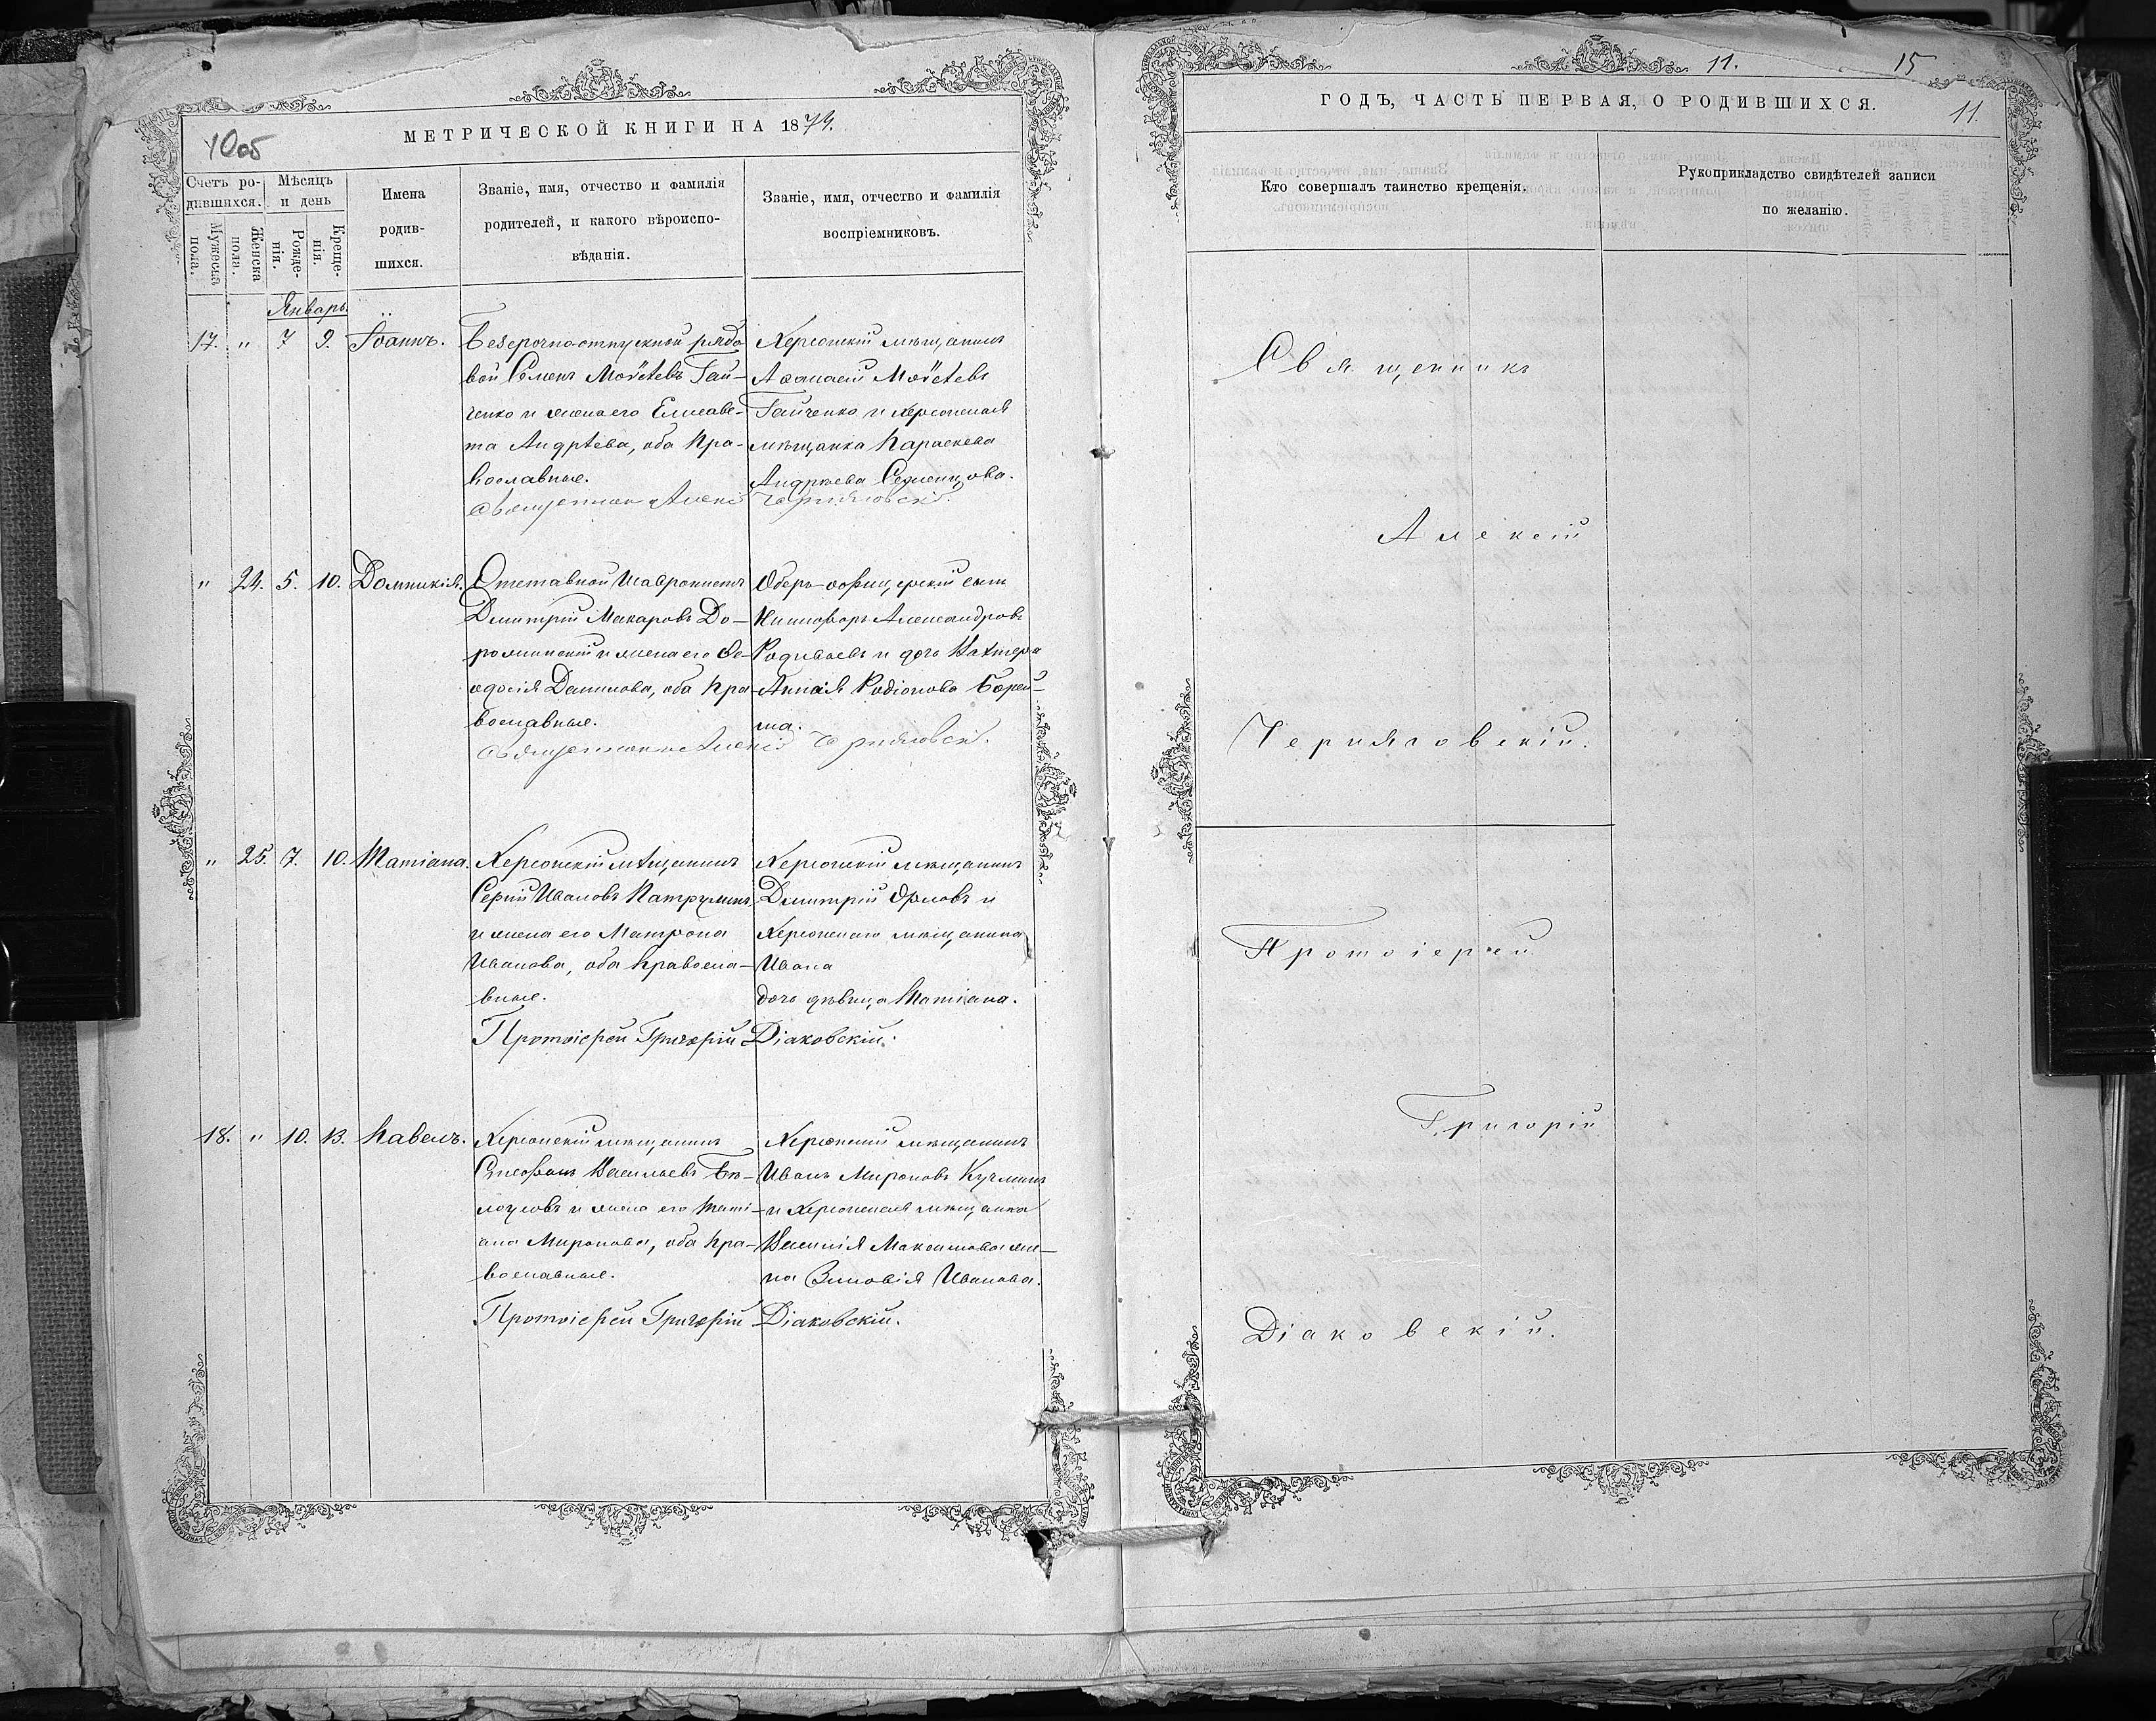 10об
МЕТРИЧЕСКОЙ КНИГИ НА 1874.
Счетъ ро-
дившихся.
Мужеска пола.
Женска пола.
Мѣсяцъ
и день
Рожде-
нія.
Креще-
нія.
Имена
родив-
шихся.
Званіе, имя, отчество и фамилія
родителей, и какого вѣроиспо-
вѣданія.
Званіе, имя, отчество и фамилія
воспріемниковъ.
Январь.
17. " 7 9. Іоаннъ.
Безсрочноотпускной рядо
вой Семенъ Моѵсѣевъ Гай-
ченко и жена его Елисаве-
та Андрѣева, оба Пра-
вославные.
Херсонскій мѣщанинъ
Аѳанасій Моѵсѣевъ
Гайченко и херсонская
мѣщанка Параскева
Андрѣева
Священник Алексій Черняховскій.
" 24. 5. 10. Домникія.
Отставной
Дмитрій Макаровъ До-
и жена его Ѳе-
одосія Данилова, оба Пра
вославные.
Оберъ-офицерскій сынъ
Никифоръ Александровъ
и дочь Вахтера
Родіонова
Священникъ Алексій
" 25. 7. 10. Татіана.
Херсонскій мѣщанинъ
Сергій Ивановъ
и жена его Матрона
Иванова, оба Правосла-
вные.
Херсонскій мѣщанинъ
Димитрій Орловъ и
Херсонскаго мѣщанина
Ивана
дочь дѣвица Татіана.
Протоіерей Григорій Діаковскій.
18. " 10. 13. Павелъ.
Херсонскій мѣщанинъ
Стефанъ Васильевъ Бѣ-
лоусовъ и жена его Таті-
ана Миронова, оба Пра-
вославные.
Херсонскій мѣщанинъ
Иванъ Мироновъ
и Херсонская мѣщанка
Максимова же-
на Зиновія Иванова.
Протоіерей Григорій Діаковскій.
11. 15
ГОДЪ, ЧАСТЬ ПЕРВАЯ, О РОДИВШИХСЯ.
11.
Кто совершалъ таинство крещенія.
Рукоприкладство свидѣтелей записи
по желанію.
Священникъ
Алексій
Черняховскій.
Протоіерей
Григорій
Діаковскій.